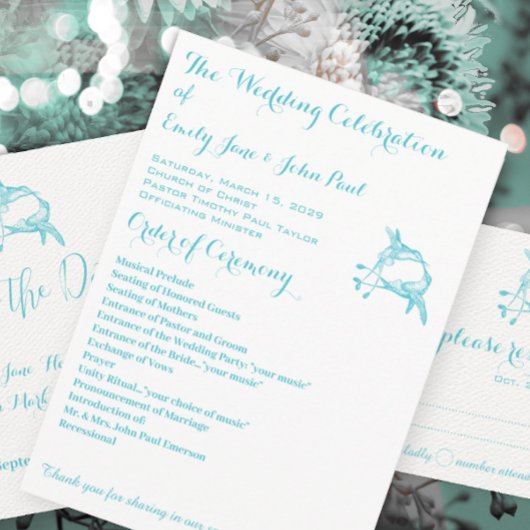 The Wedding Celebration
of
Emily Jane & John Paul
Saturday, March 15, 2029
Church of Christ
Pastor Timothy Paul Taylor
Officiating Minister
Order of Ceremony
Musical Prelude
Seating of Honored Guests
Seating of Mothers
Entrance of Pastor and Groom
Entrance of the Wedding Party: "your music"
Entrance of the Bride... "your music"
Exchange of Vows
Prayer
Unity Ritual... "your choice of music"
Pronouncement of Marriage
Introduction of:
Mr. & Mrs. John Paul Emerson
Recessional
Thank you for sharing in our
the D
Jane He
Mark
Septe
please re
Oct.
ladly number attend